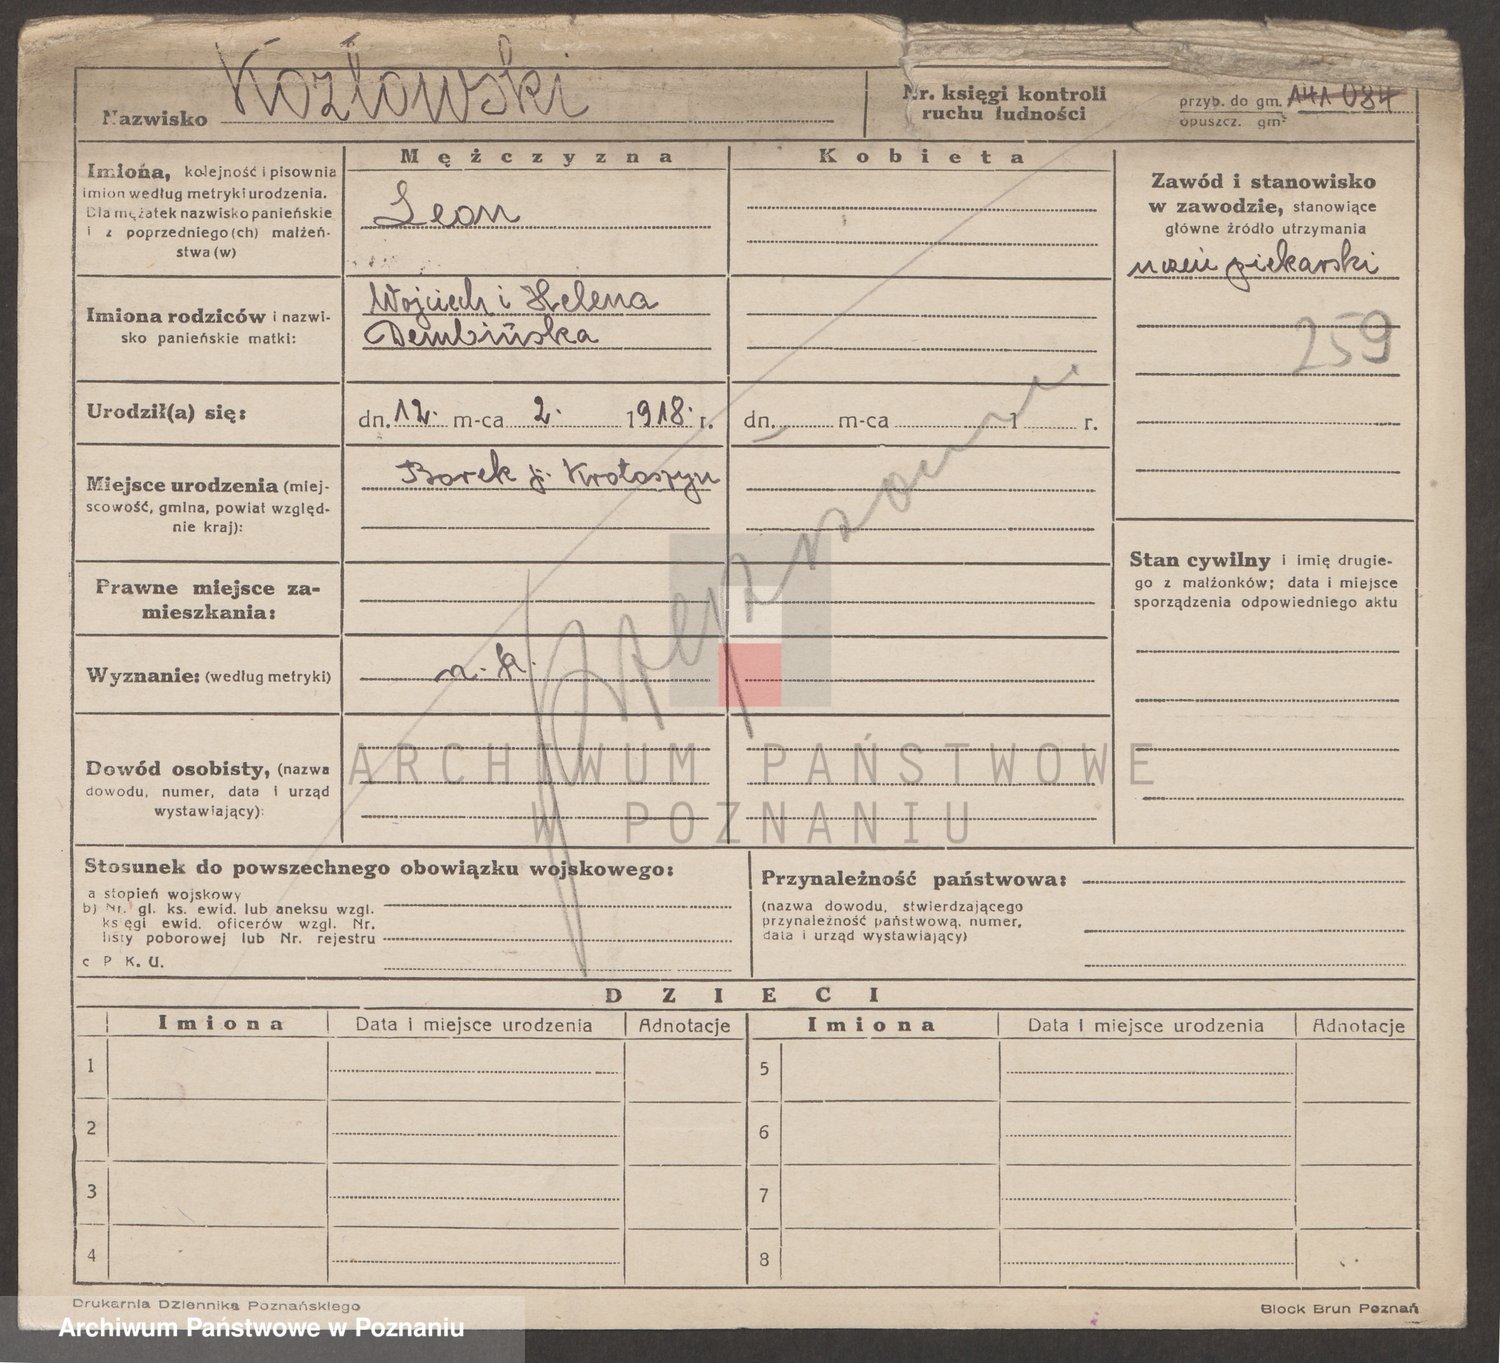 Nazwisko Kozłowski
Nr. księgi kontroli ruchu ludności
przyb. do gm. 141 084
opuszcz. gm.
Mężczyzna
Kobieta
Imiona, kolejność i pisownia
imion według metryki urodzenia.
Dla mężatek nazwisko panieńskie
i z poprzedniego (ch) małżeń-
stwa (w)
Leon
Zawód i stanowisko
w zawodzie, stanowiące
główne źródło utrzymania
uczeń piekarski
259
Imiona rodziców i nazwi-
sko panieńskie matki:
Wojciech i Helena
Dembińska
Urodził(a) się:
dn. 12. m-ca 2. 1918. r.
dn. m-ca 1 r.
Miejsce urodzenia (miej-
scowość, gmina, powiat względ-
nie kraj):
Borek p. Krotoszyn
Stan cywilny i imię drugie-
go z małżonków; data i miejsce
sporządzenia odpowiedniego aktu
Prawne miejsce za-
mieszkania:
Wyznanie: (według metryki)
Dowód osobisty, (nazwa
dowodu, numer, data i urząd
wystawiający):
ARCHIWUM PAŃSTWOWE
W POZNANIU
Stosunek do powszechnego obowiązku wojskowego:
a stopień wojskowy
b) Nr. gl. ks. ewid. lub aneksu wzgl.
księgi ewid. oficerów wzgl. Nr.
listy poborowej lub Nr. rejestru
c P K. U.
Przynależność państwowa:
(nazwa dowodu, stwierdzającego
przynależność państwową, numer,
data i urząd wystawiający)
DZIECI
Imiona Data i miejsce urodzenia Adnotacje Imiona Data i miejsce urodzenia Adnotacje
1 5
2 6
3 7
4 8
Drukarnia Dziennika Poznańskiego
Block Brun Poznań
Archiwum Państwowe w Poznaniu